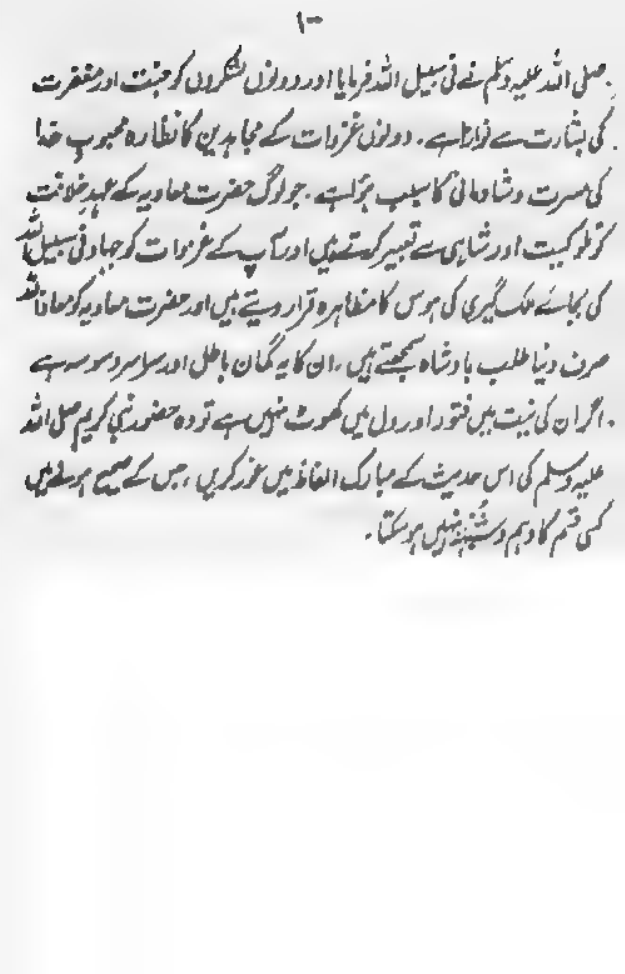 ۱۰۰
صلی اللہ علیہ وسلم نے فی سبیل اللہ فرمایا اور دونوں لشکروں کو جنت اور مغفرت
کی بشارت سے نوازا ہے۔ دونوں غزوات کے مجاہدین کا نظارہ محبوب خدا
کی مسرت و شادمانی کا سبب ہوا ہے۔ جو لوگ حضرت معاویہ کے عہدِ خلافت
کو ملوکیت اور شاہی سے تعبیر کرتے ہیں اور آپ کے غزوات کو جہاد فی سبیل اللہ
کی بجائے ملک گیری کی ہوس کا مظاہرہ قرار دیتے ہیں اور حضرت معاویہ کو معاذ اللہ
صرف دنیا طلب بادشاہ سمجھتے ہیں، ان کا یہ گمان باطل اور سراسر وسوسہ ہے
۔ اگر ان کی نیت میں فتور اور دل میں کھوٹ نہیں ہے تو وہ حضور نبی کریم صلی اللہ
علیہ وسلم کی اس حدیث کے مبارک الفاظ میں غور کریں، جس کے صحیح ہونے میں
کسی قسم کا وہم و شُبہ نہیں ہو سکتا۔